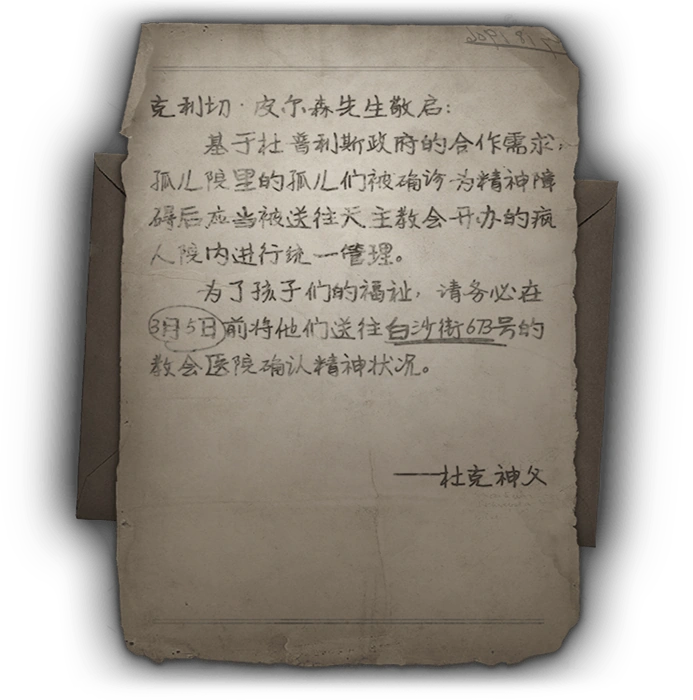 克利切·皮尔森先生敬启：
基于杜普利斯政府的合作需求，
孤儿院里的孤儿们被确诊为精神障
碍后应当被送往天主教会开办的疯
人院内进行统一管理。
为了孩子们的福祉，请务必在
3月5日前将他们送往白沙街673号的
教会医院确认精神状况。
——杜克神父